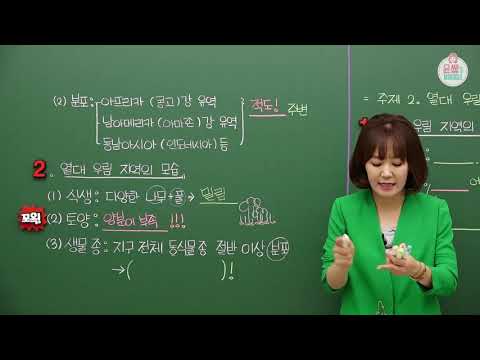 (2) 분포: 아프리카 (콩고)강 유역
남아메리카 (아마존)강 유역
동남아시아 (인도네시아) 등
적도! 주변
2. 열대 우림 지역의 모습
(1) 식생: 다양한 나무+풀 → 밀림
꼬옥! (2) 토양: 양분이 부족 !!!
(3) 생물 종: 지구 전체 동식물종 절반 이상 분포
→( )!
= 주제 2. 열대 우림
우림 지역의